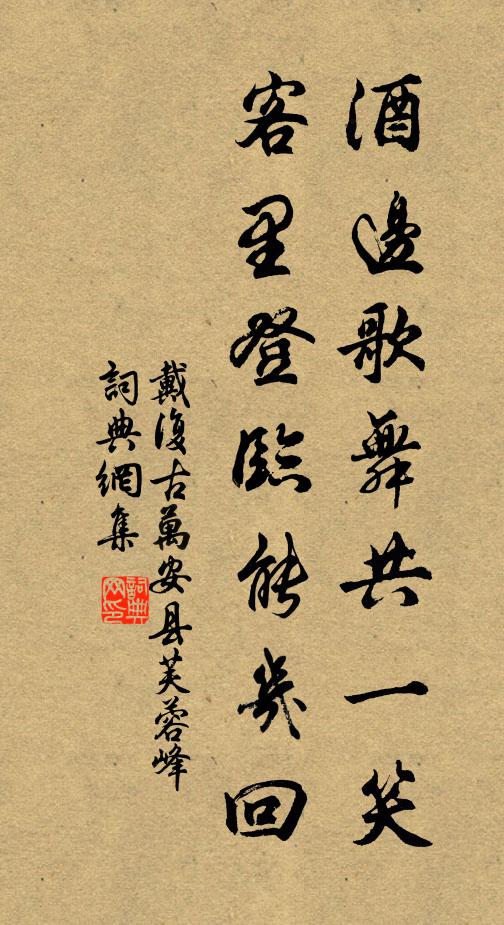 酒邊歌舞共一笑
客里登臨能幾回
戴復古萬安县芙蓉峰
詞典網集
詞典网印